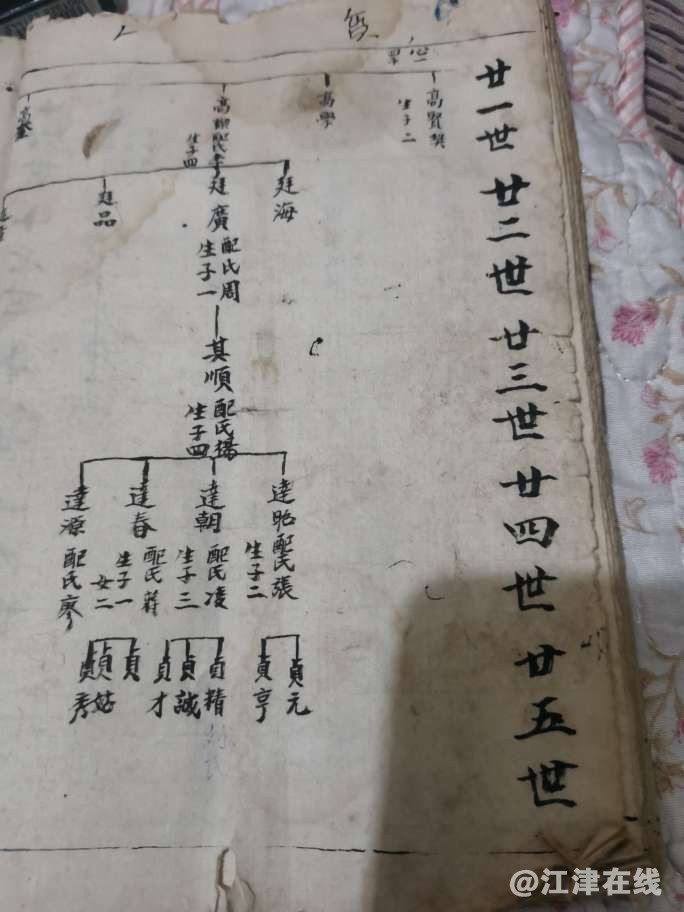 廿一世
廿二世
廿三世
廿四世
廿五世
高賢契
生子二
高學
高
配氏李
生子四
廷海
廷廣
配氏周
生子一
廷品
其順
配氏楊
生子四
達昭
配氏張
生子二
達朝
配氏凌
生子三
達春
配氏蔣
生子一
女二
達源
配氏廖
貞元
貞亨
貞精
貞誠
貞才
貞
貞姑
秀
@江津在线